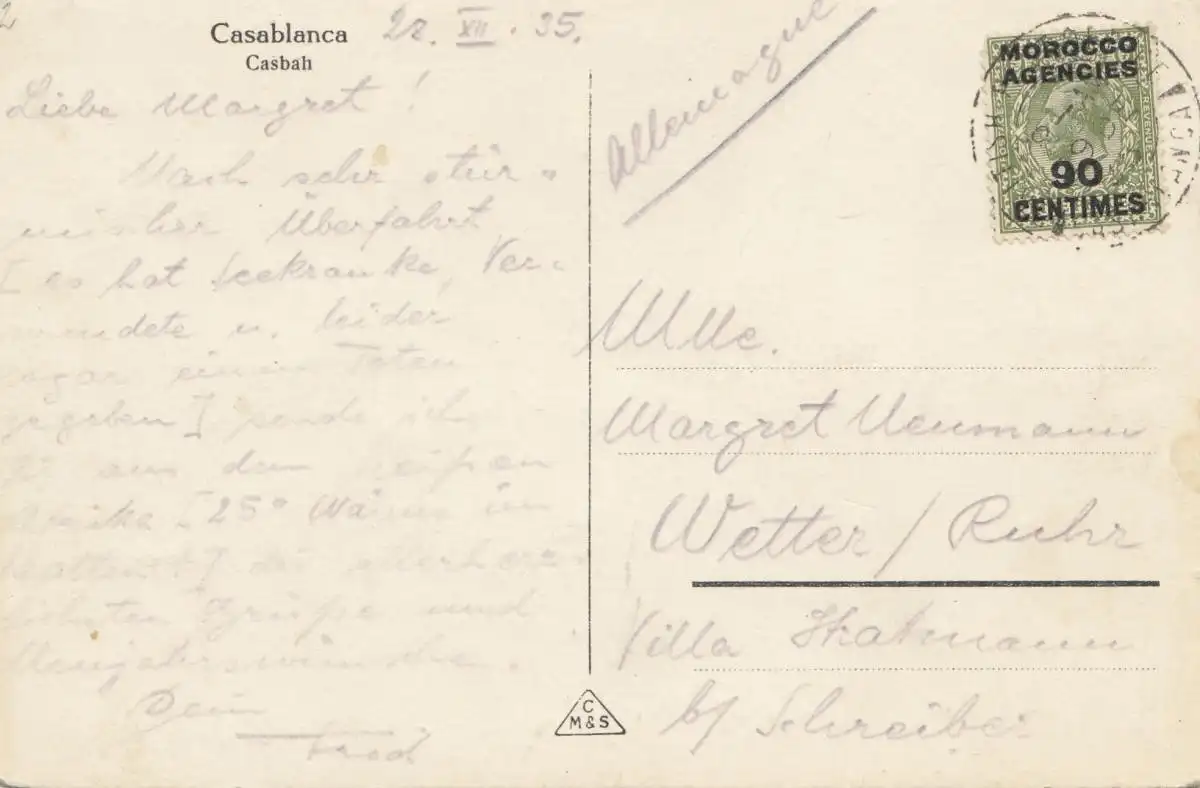 Casablanca
Casbah
22. XII. 35.
Liebe Margret!
Nach sehr stür-
mischer Überfahrt
[es hat Seekranke, Ver-
wundete u. leider
sogar einen Toten
gegeben] sende ich
aus dem heißen
Afrika [25° Wärme im
Schatten!] die allerherz-
lichsten Grüße und
Neujahrswünsche.
Dein
Fred
Allemagne
MOROCCO
AGENCIES
90
CENTIMES
REVENUE
Mlle.
Margret Neumann
Wetter / Ruhr
Villa
b/ Schreiber
C
M & S